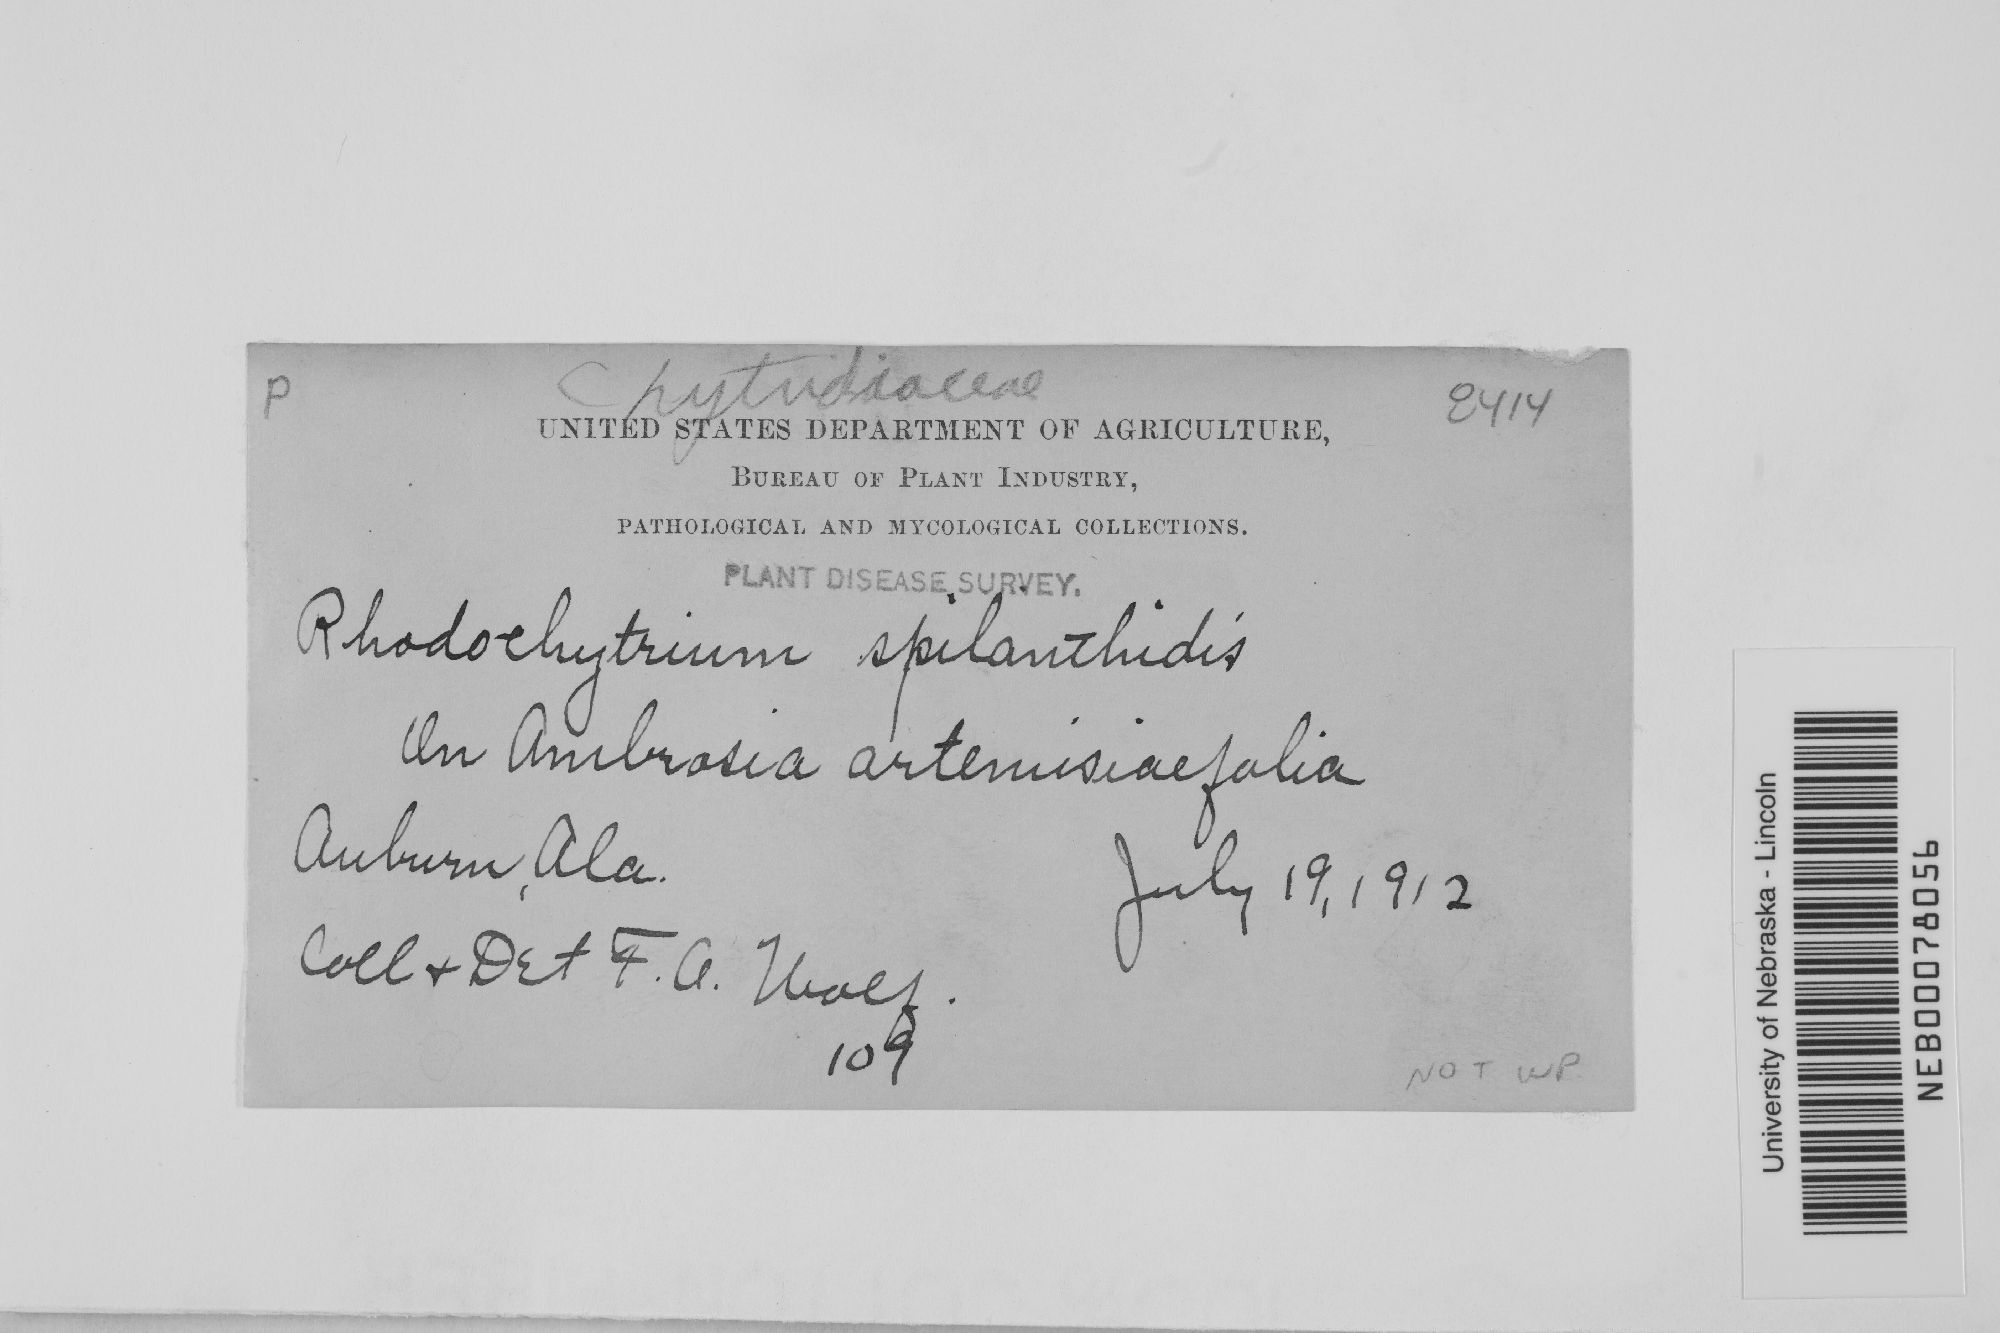 P
Chytridiaceae
8414
UNITED STATES DEPARTMENT OF AGRICULTURE,
BUREAU OF PLANT INDUSTRY,
PATHOLOGICAL AND MYCOLOGICAL COLLECTIONS.
PLANT DISEASE SURVEY.
Rhodochytrium spilanthidis
On Ambrosia artemisiaefolia
Auburn, Ala.
July 19, 1912
Coll + Det F. A. Wolf.
109
NOT WP
University of Nebraska - Lincoln
NEB00078056